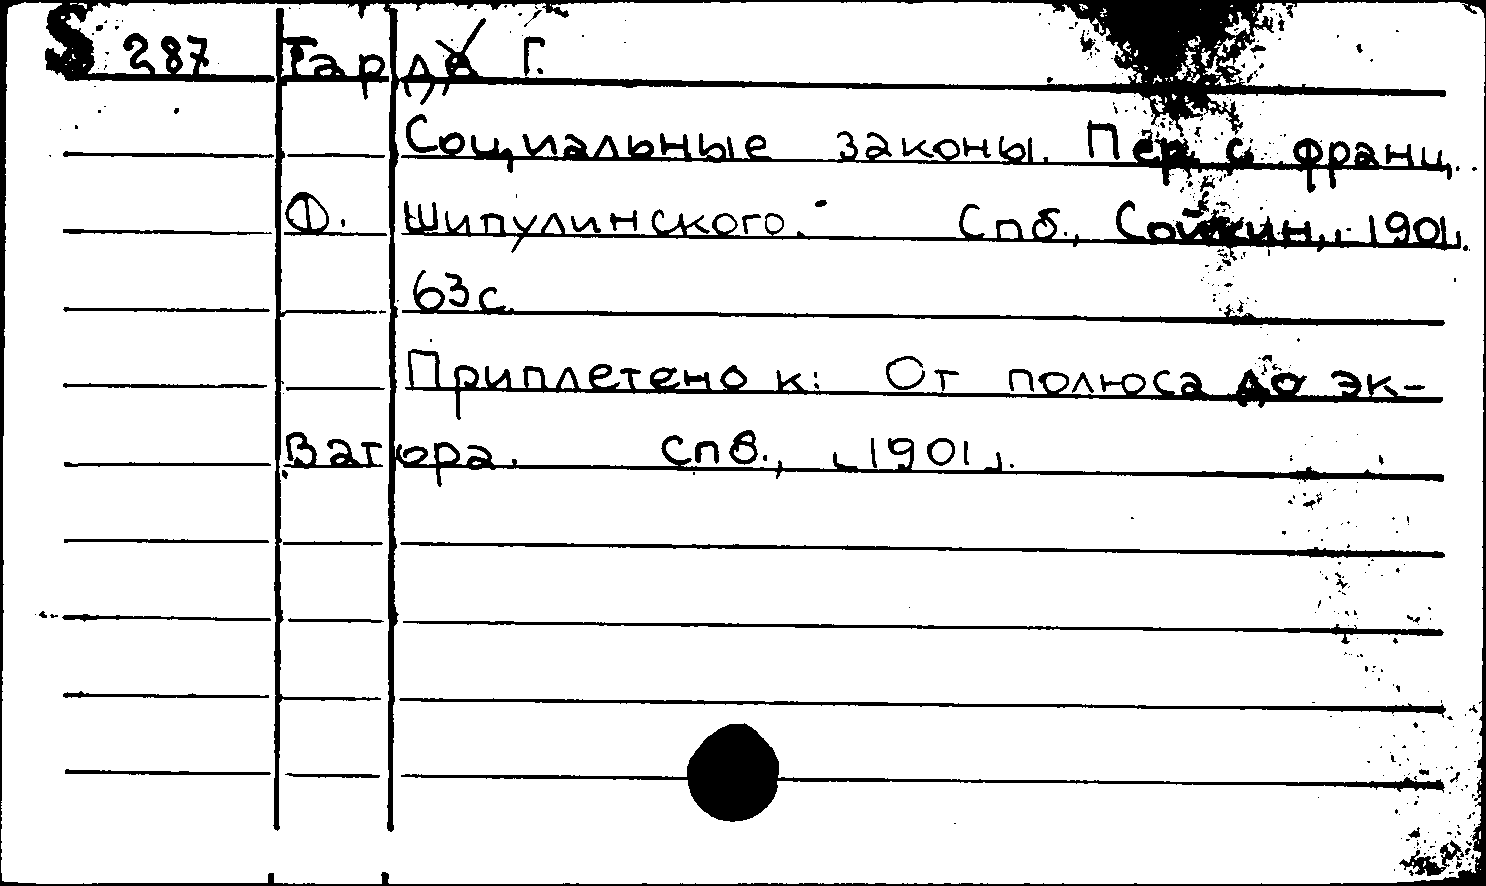 S 287 Тард Г.
Социальные законы. Пер. с франц.
Ф. Шипулинского. Спб., Сойкин, 1901.
63 с.
Приплетено к: От полюса до эк-
ватора. Спб., [1901].